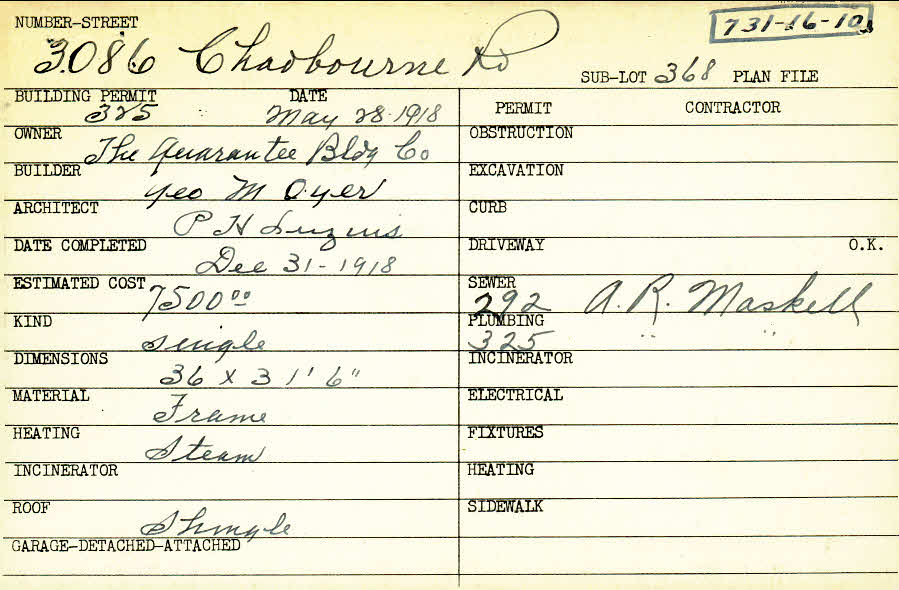 NUMBER-STREET
731-16-10
3086 Chadbourne Rd
SUB-LOT 368 PLAN FILE
BUILDING PERMIT DATE
325 May 28-1918
OWNER
The Guarantee Bldg Co
BUILDER
Geo M Oyer
ARCHITECT
P H
DATE COMPLETED
Dec 31-1918
ESTIMATED COST
7500.00
KIND
single
DIMENSIONS
36 x 31'6"
MATERIAL
Frame
HEATING
Steam
INCINERATOR
ROOF
Shingle
GARAGE-DETACHED-ATTACHED
PERMIT CONTRACTOR
OBSTRUCTION
EXCAVATION
CURB
DRIVEWAY O.K.
SEWER
292 A. R. Maskell
PLUMBING
325 " "
INCINERATOR
ELECTRICAL
FIXTURES
HEATING
SIDEWALK